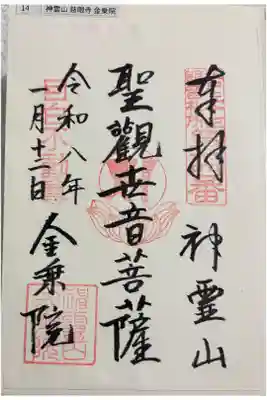 14 神霊山 慈眼寺 金乗院
奉拝 神霊山
聖觀世音菩薩
令和八年
一月十二日
金乗院